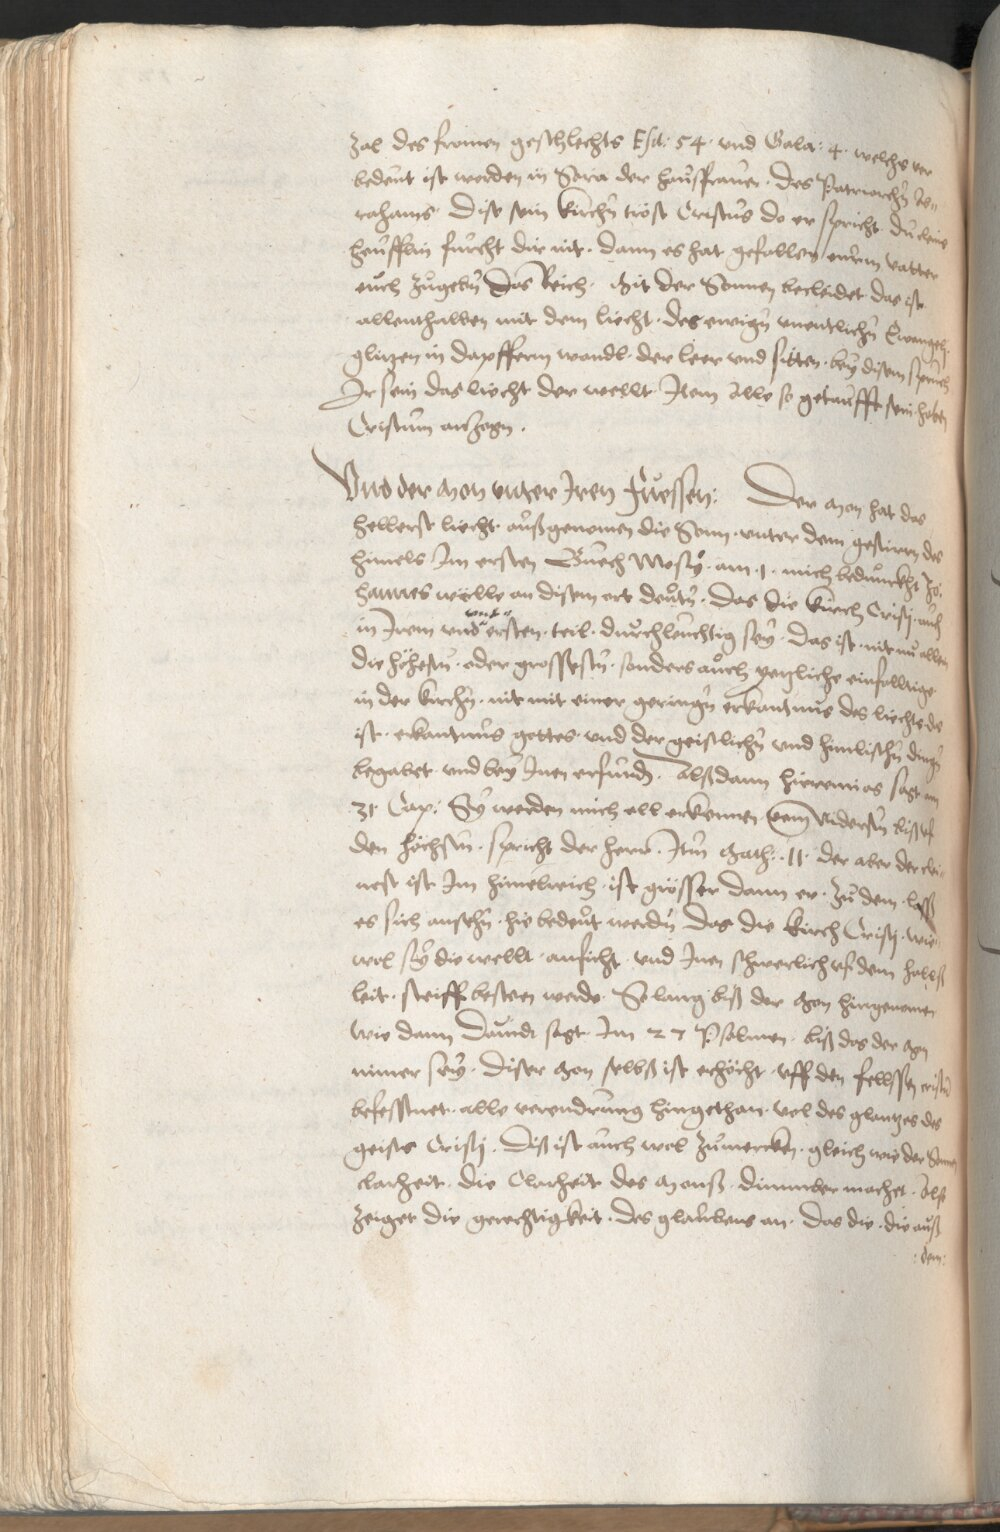 zal des fromen geschlechts Esa: 54. und Gala: 4. welchs ver
bedeut ist worden in Sara der haußfrauen. des Patriarchn Ab=
rahams. Dise sein kirchn tröst Cristus do er spricht. du clein
heufflin furcht dir nit. dann es hat gefallen eurm vatter
euch zugebn das Reich. Mit der Sonnen becleidet das ist
allenthalben mit dem liecht. des ewign wentlichn Evangelij
glitzen in dapfferm wandl. der leer und sitten. bey disem spruch
Ir sein das liecht der wellt. Item Alle so getaufft sein. haben
Cristum anzogn.
Und der Mon unter Iren Fuessen: Der Mon hat das
hellerst liecht. außgenomen die Sonn. unter dem gestirn des
himels. Im ersten Buech Mosy. am .1. mich bedunckht Jo.
hannes wölle an disem ort deutn. das die kirch Cristj. auch
in Irem understen. teil. durchleuchtig sey. das ist. nit nu allein
die höhestn. oder grossestn. sonders auch yetzliche einfalltige
in der kirchn. nit mit einer geringn erkantnus des liechts. das
ist. erkantnus gottes. und der geistlichn und himlischn dingn
begabet. und bey Inen erfunden. Alßdann Hieremias sagt am
31 Cap: Sy werden mich all erkennen vom Undersn biß uf
den höchsten. spricht der herr. Im Math: .11. der aber der clei=
nest ist Im himelreich. ist grösser dann er. Zu dem. laßt
es sich ansehn. hie bedeut werdn das die kirch Cristj. wie
wol sy die wellt. anficht. und Inen schwerlich uf dem halß
leit. steiff besteen werde. So lang biß der Mon hingenomen
wie dann Dauid sagt Im 27 Psalmen. biß das der Mon
nimer sey. Diser Mon selbs ist erhöcht. uff den fellssen cristum
befesstnet. alle verendrung hingethan. vol des glantzes des
geists Cristj. Diß ist auch wol zumercken. gleich wie der Sonnen
clarheit. die Clarheit des Monß. dunncker machet. Also
zeiget die gerechtigkeit. des glaubens an. das die. die auß
:dem: